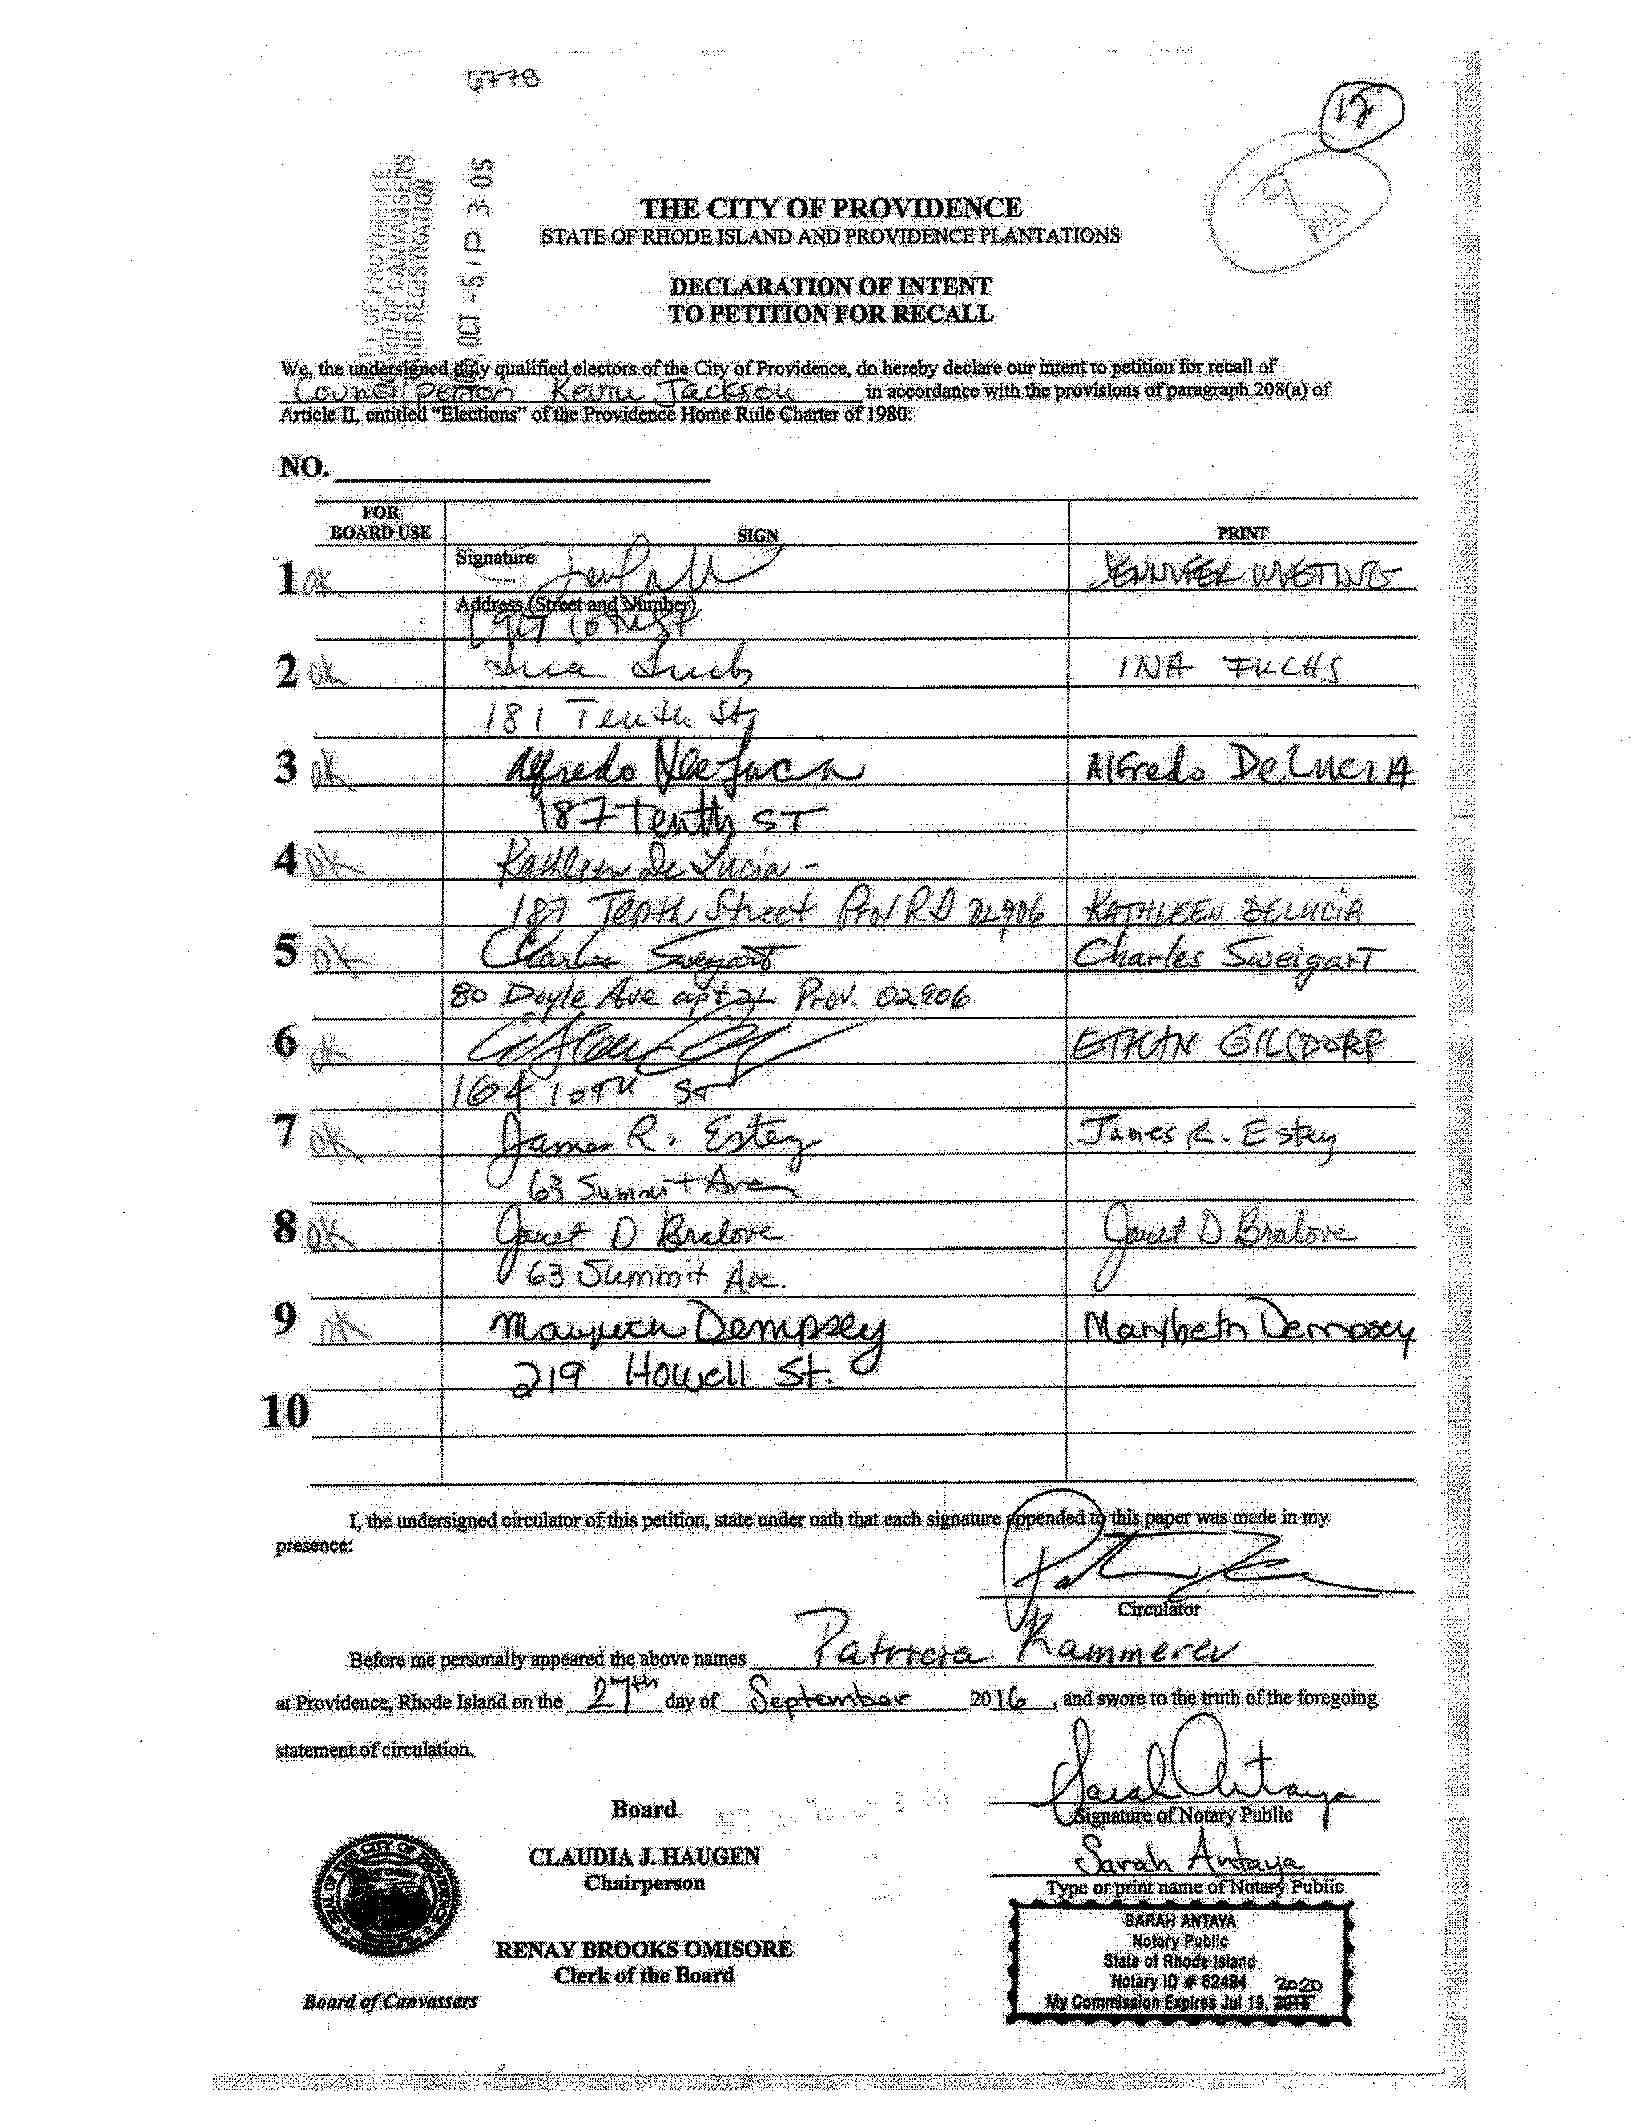 12
OCT -5 P 3:05
THE CITY OF PROVIDENCE
STATE OF RHODE ISLAND AND PROVIDENCE PLANTATIONS
DECLARATION OF INTENT
TO PETITION FOR RECALL
We, the undersigned duly qualified electors of the City of Providence, do hereby declare our intent to petition for recall of
Council person Jackson in accordance with the provisions of paragraph 208(a) of
Article II, entitled "Elections" of the Providence Home Rule Charter of 1980:
NO.
FOR
BOARD USE SIGN PRINT
Signature
1 OK JENNIFER
Address (Street and Number)
10th ST
2 OK Ina Fuchs INA FUCHS
181 Tenth St
3 OK Alfredo DeLucia Alfredo DeLuciA
187 Tenth ST
4 OK Kathleen DeLucia -
187 Tenth Street Prov RI 02906 KATHLEEN DELUCIA
5 OK Charles Sweigart Charles Sweigart
80 Doyle Ave apt Prov. 02906
6 OK ETHAN GILSDORF
164 10TH ST
7 OK James R. Estey James R. Estey
63 Summit Ave
8 OK Janet D Bralove Janet D Bralove
63 Summit Ave.
9 OK Marybeth Dempsey Marybeth Dempsey
219 Howell St.
10
I, the undersigned circulator of this petition, state under oath that each signature appended to this paper was made in my
presence:
Circulator
Before me personally appeared the above names Patricia Kammerer
at Providence, Rhode Island on the 27th day of September 2016, and swore to the truth of the foregoing
statement of circulation.
Sarah Antaya
Board
Signature of Notary Public
CLAUDIA J. HAUGEN
Sarah Antaya
Chairperson
Type or print name of Notary Public
SARAH ANTAYA
Notary Public
RENAY BROOKS OMISORE
State of Rhode Island
Clerk of the Board
Notary ID # 62484 2020
Board of Canvassers
My Commission Expires Jul 19,